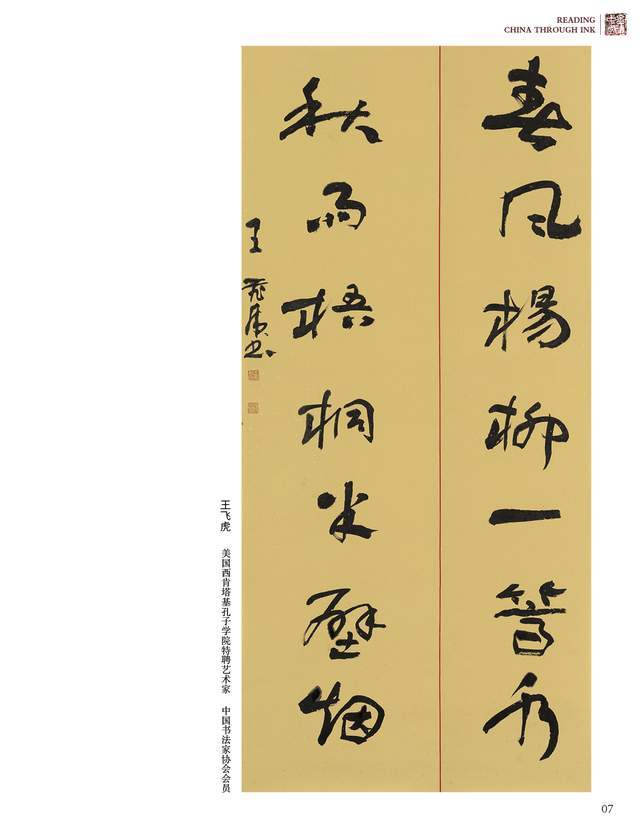 READING
CHINA THROUGH INK
春风楊柳一
秋雨梧桐半壁烟
王飛虎书
王飞虎 美国西肯塔基孔子学院特聘艺术家 中国书法家协会会员
07